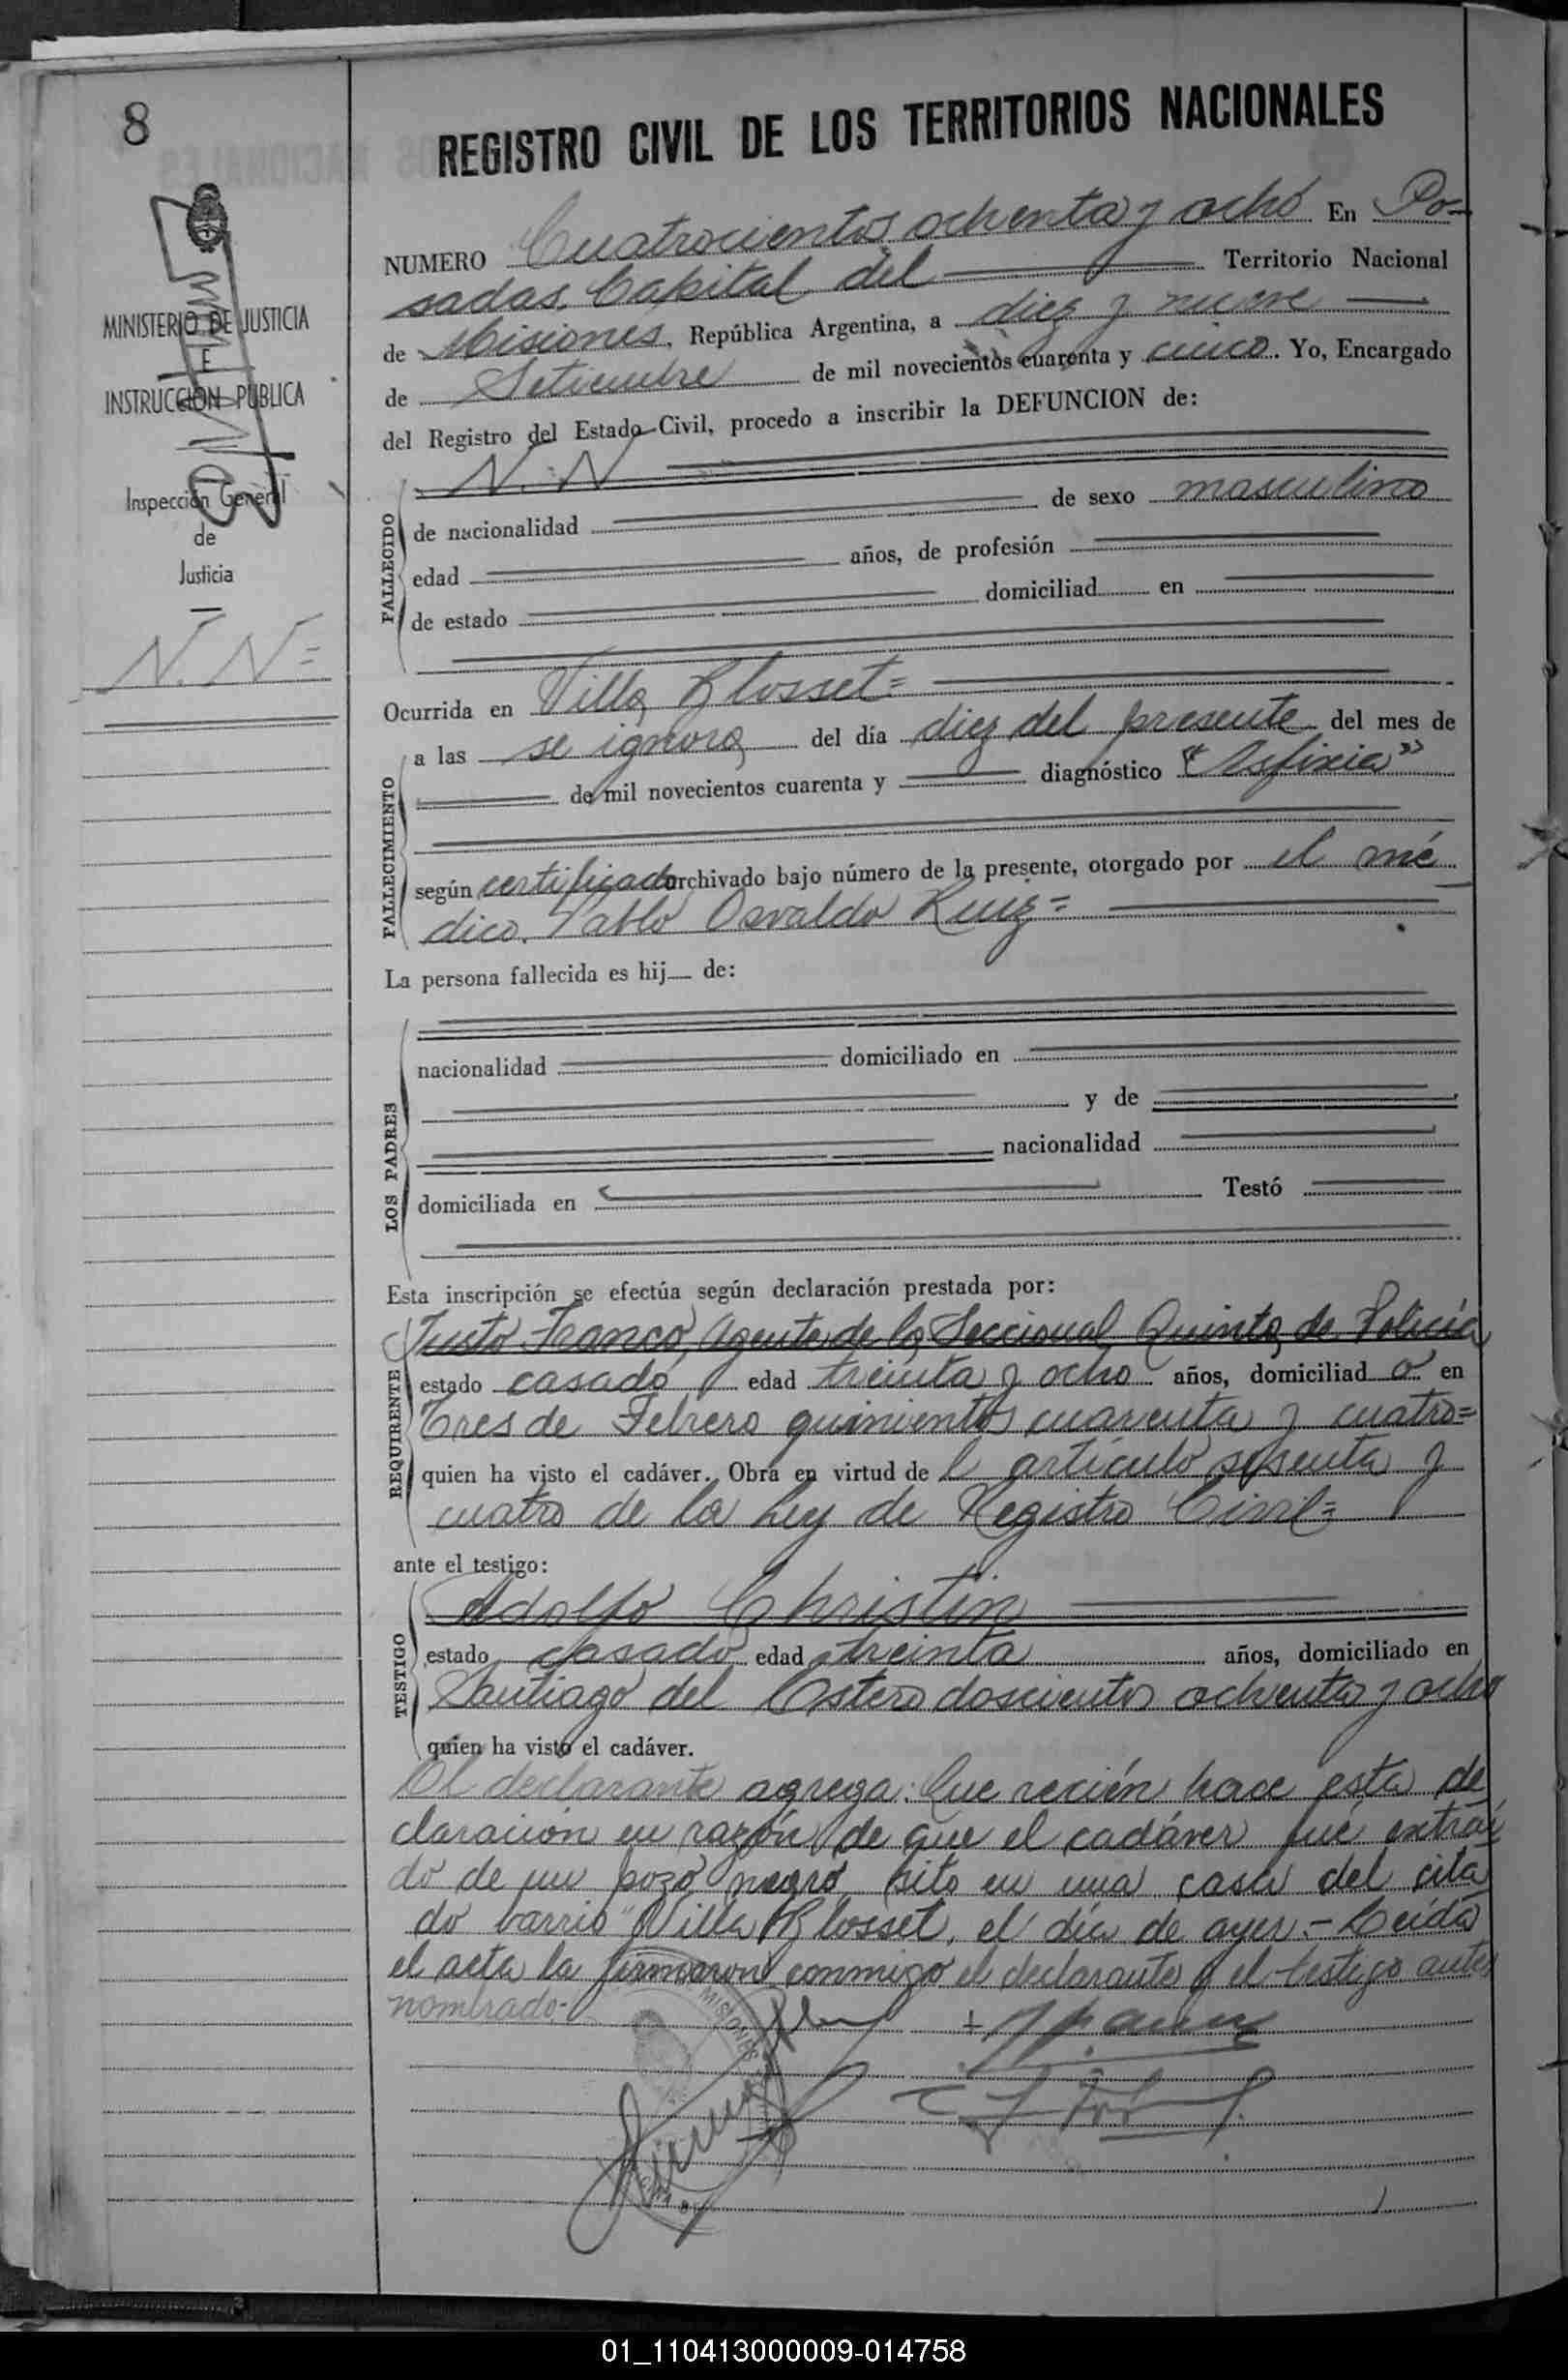 8
REGISTRO CIVIL DE LOS TERRITORIOS NACIONALES
MINISTERIO DE JUSTICIA
E
INSTRUCCION PUBLICA
Inspección General
de
Justicia
N. N =
NUMERO Cuatrocientos ochenta y ocho En Po-
sadas, Capital del Territorio Nacional
de Misiones, República Argentina, a diez y nueve
de Setiembre de mil novecientos cuarenta y cinco. Yo, Encargado
del Registro del Estado Civil, procedo a inscribir la DEFUNCION de:
FALLECIDO
N. N
de nacionalidad de sexo masculino
edad años, de profesión
de estado domiciliad en
Ocurrida en Villa Blosset =
FALLECIMIENTO
a las se ignora del día diez del presente del mes de
de mil novecientos cuarenta y diagnóstico "Asfixia"
según certificado archivado bajo número de la presente, otorgado por el mé
dico. Pablo Osvaldo Ruiz =
La persona fallecida es hij de:
LOS PADRES
nacionalidad domiciliado en
y de
nacionalidad
domiciliada en Testó
Esta inscripción se efectúa según declaración prestada por:
REQUIRENTE
Justo Franco, Agente de la Seccional Quinta de Policía
estado casado, edad treinta y ocho años, domiciliad o en
Tres de Febrero quinientos cuarenta y cuatro =
quien ha visto el cadáver. Obra en virtud de l artículo sesenta y
cuatro de la Ley de Registro Civil =
ante el testigo:
TESTIGO
Adolfo Christin
estado casado edad treinta años, domiciliado en
Santiago del Estero doscientos ochenta y ocho
quien ha visto el cadáver.
El declarante agrega: Que recién hace esta de
claración en razón de que el cadáver fué extraí
do de un pozo negro sito en una casa del cita
do barrio "Villa Blosset, el día de ayer.- Leída
el acta la firmaron conmigo el declarante y el testigo antes
nombrado.-
MISIONES
01_110413000009-014758